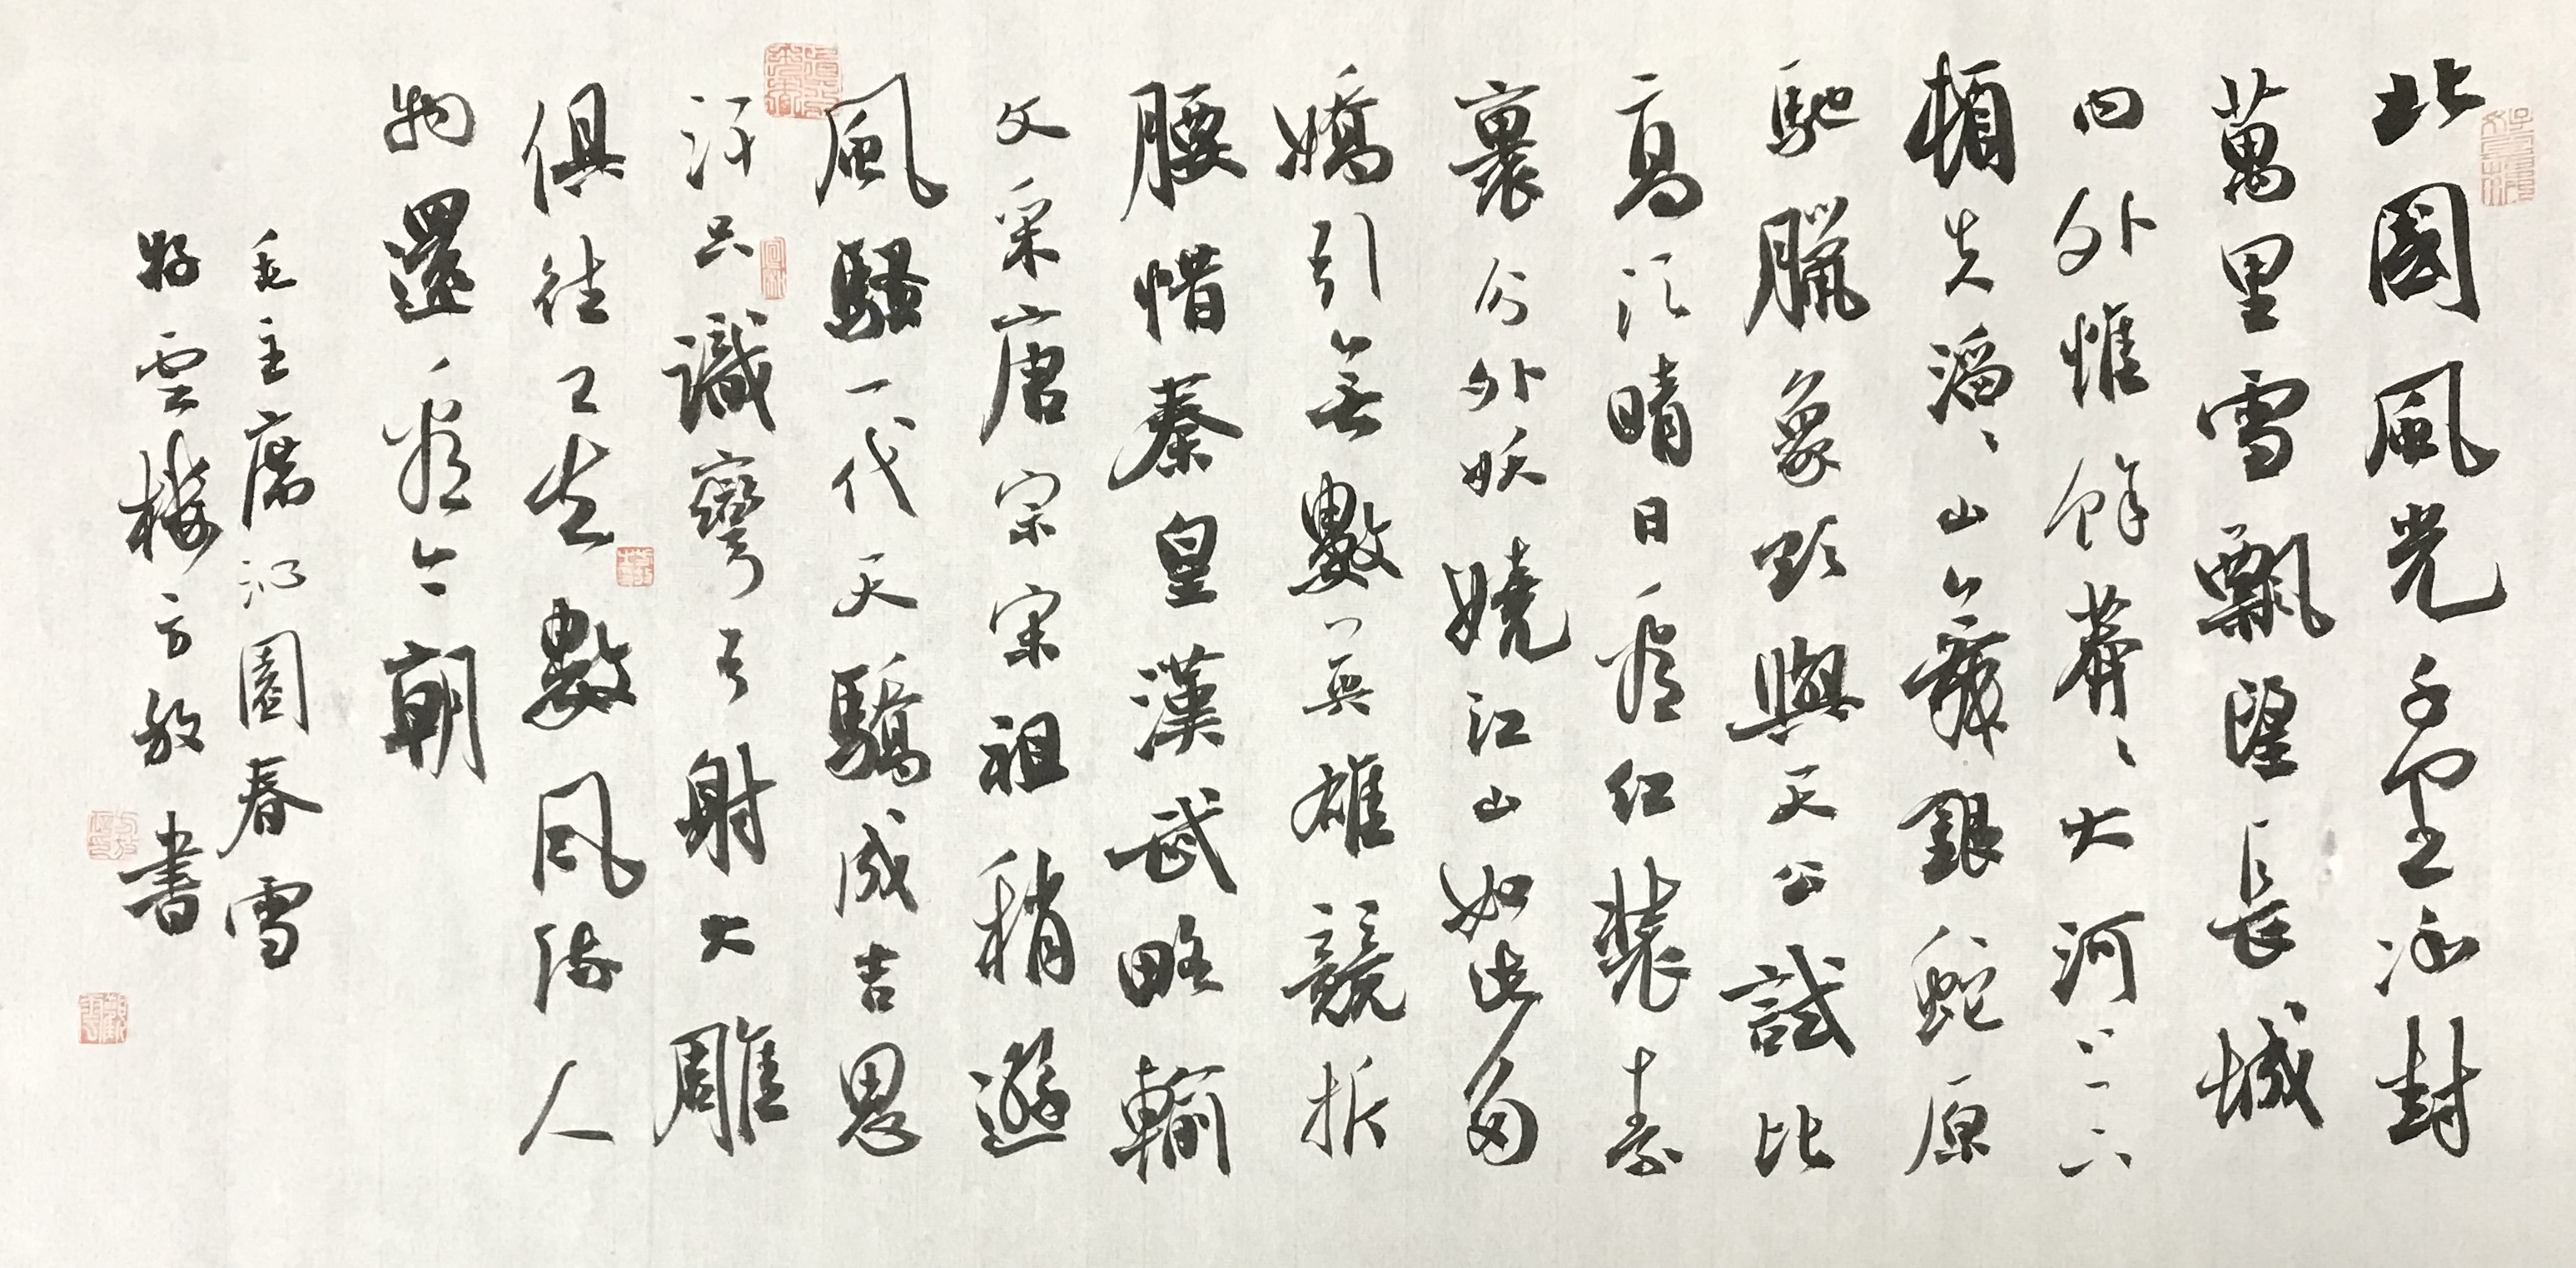 北國風光千里冰封
萬里雪飄望長城
內外惟餘莽々大河上下
頓失滔々山舞銀蛇原
馳臘象欲與天公試比
高須晴日看紅裝素
裹分外妖嬈江山如此多
嬌引無數英雄競折
腰惜秦皇漢武略輸
文采唐宗宋祖稍遜
風騷一代天驕成吉思
汗只識彎弓射大雕
俱往矣數風流人
物還看今朝
毛主席沁園春雪
雲樓方放書